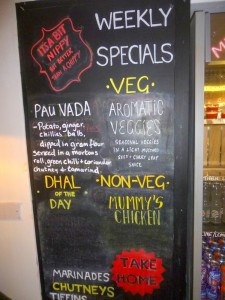 WEEKLY
SPECIALS
IT'S A BIT
NIPPY
VEG
PAU VADA
- Potato, ginger,
chillies balls,
dipped in gram flour
served in a
roll, green chilli + coriander
chutney + tamarind
AROMATIC
VEGGIES
SEASONAL VEGGIES
IN A LIGHT MUSTARD
SEED + CURRY LEAF
SAUCE
DHAL
OF THE
DAY
NON-VEG
MUMMY'S
CHICKEN
TAKE
HOME
MARINADES
CHUTNEYS
TIFFINS